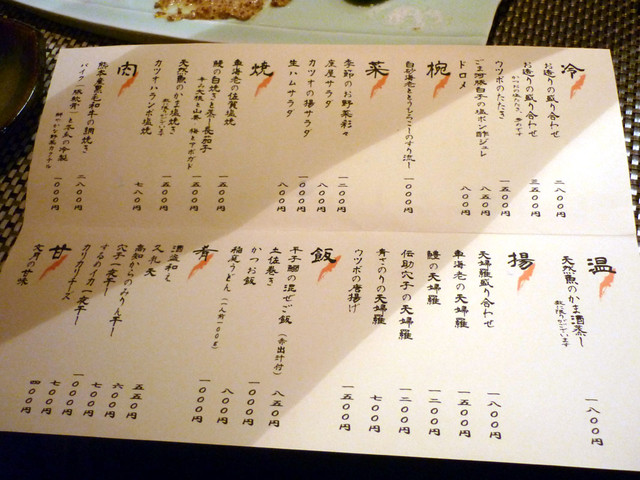 冷
お造り盛り合わせ 二八〇〇円
お造り盛り合わせ 三五〇〇円
ウツボのたたき 一五〇〇円
ごま河豚白子の塩ポン酢ジュレ 八五〇円
ドロメ 八〇〇円
椀
白砂海老ととうもろこしのすり流し 一〇〇〇円
菜
季節のお野菜彩々 一二〇〇円
座屋サラダ 八〇〇円
カツオの揚サラダ 一〇〇〇円
生ハムサラダ 八〇〇円
焼
車海老の佐賀塩焼 一五〇〇円
鰻の白焼きと蒸し長茄子
牛の大根と山葵 梅とアボカド
天然魚のかま塩焼き 一五〇〇円
数に限りがございます
カツオハランボ塩焼 七八〇円
肉
熊本産黒毛和牛の網焼き 二八〇〇円
一〇〇〇円
温
天然魚のかま酒蒸し 一八〇〇円
数に限りがございます
揚
天婦羅盛り合わせ 一八〇〇円
車海老の天婦羅 一五〇〇円
鱧の天婦羅 一二〇〇円
伝助穴子の天婦羅 一二〇〇円
青さのりの天婦羅 七〇〇円
ウツボの唐揚げ 一五〇〇円
飯
平子鰯の混ぜご飯(赤出汁付) 八五〇円
土佐巻き 一〇〇〇円
かつお飯 八〇〇円
稲庭うどん(一人前一〇〇g) 一〇〇〇円
肴
酒盗和え 五五〇円
久礼天 六〇〇円
高知からのみりん干し 七〇〇円
穴子一夜干し 一〇〇〇円
するめイカ一夜干し 七〇〇円
カリカリチーズ 四〇〇円
甘
文月の甘味